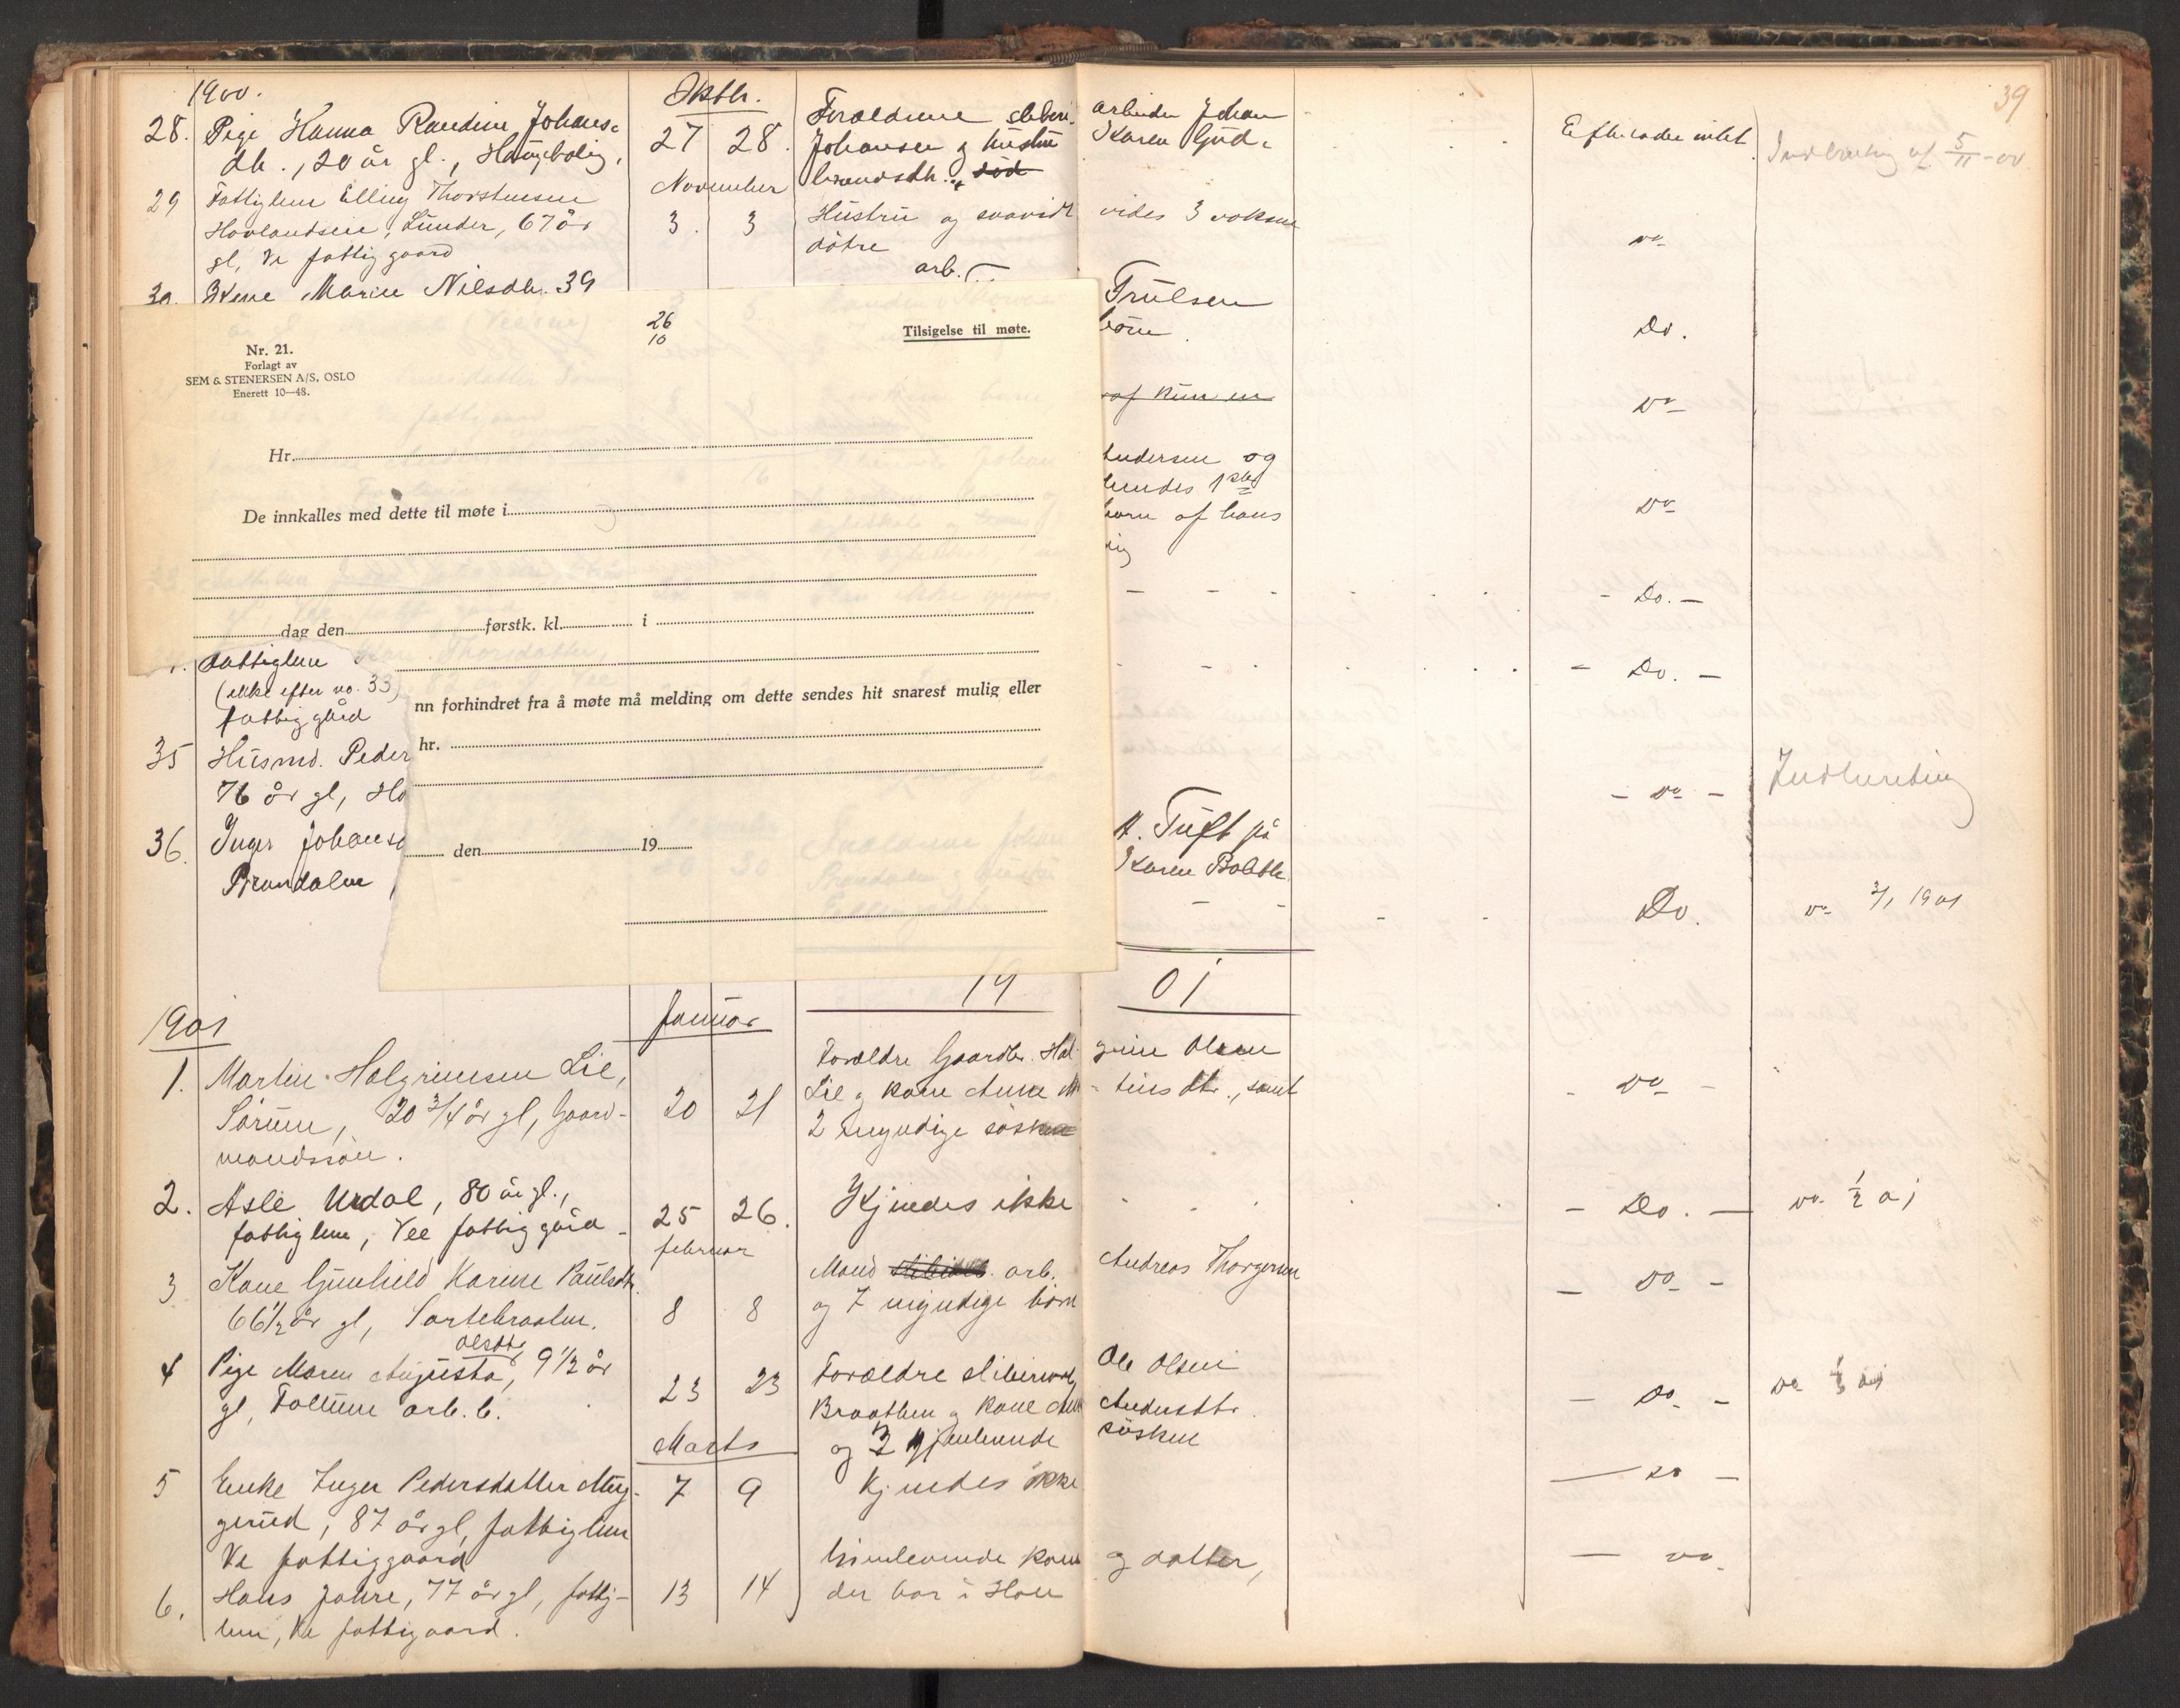 39
1900.
Oktbr.
28. Pige Hanna Randine Johans-
dtr., 20 år gl., Haugebolig.
27 28.
Forældrene sliberi- arbeider Johan
Johansen og hustru Karen Gud-
brandsdtr. død
Efterlader intet.
Indberetning af 5/11-00
November
29 Fattiglem Elling Thorstensen
Hovlandseie, Lunder, 67 år
gl, Ve fattiggaard
3. 3
Hustru og saavidt vides 3 voksne
døtre
do
30. Kone Marie Nilsdtr. 39
arb.
Trulsen
børn
Do.
26
10
Tilsigelse til møte.
Nr. 21.
Forlagt av
SEM & STENERSEN A/S, OSLO
Enerett 10—48.
af kun en
Do
Hr.
De innkalles med dette til møte i
Andersen og
1ste
børn af hans
Do
- Do. -
dag den førstk. kl. i
nn forhindret fra å møte må melding om dette sendes hit snarest mulig eller
hr.
den 19
Fattiglem
(ikke efter no. 33)
fattiggård
- Do. -
35 Husmd. Peder
76 år gl, Ho
- do -
Indberetning
36. Inger Johans
Prandalen
A. Tuft på
Karen Bolette
Do.
do 3/1 1901
19 01
1901
Januar
1. Martin Halgrimsen Lie,
Sørum, 20 3/4 år gl, Gaard-
mandssøn.
20 21
Forældre Gaardbr. Hal- grim Olsen
Lie og kone Anne M- tinsdtr., samt
2 umyndige søsken
- do -
2. Asle Urdal, 80 år gl.,
fattiglem, Vee fattiggård -
25 26.
Kjendes ikke
- Do. -
do 1/2 01
februar
3 Kone Gunhild Karine Paulsdtr.
66 1/2 år gl, Sortebraaten.
8 8
Mand arb. Andreas Thorgersen
og 7 myndige børn
- do -
4 Pige Maren Augusta Olsdtr, 9 1/2 år
gl, Follum arb. b.
23 23
Forældre sliberiarb. Ole Olsen
Braathen og kone Andersdtr.
og 2 gjenlevende søsken
- do -
do 1/3 01
Marts
5 Enke Inger Pedersdatter Mug-
gerud, 87 år gl, fattiglem
Ve fattiggaard
7 9
Kjendes ikke
- do -
6. Hans Jahre, 77 år gl, fattig-
lem, Ve fattiggaard.
13 14
kone og datter,
der bor i Hole
- do